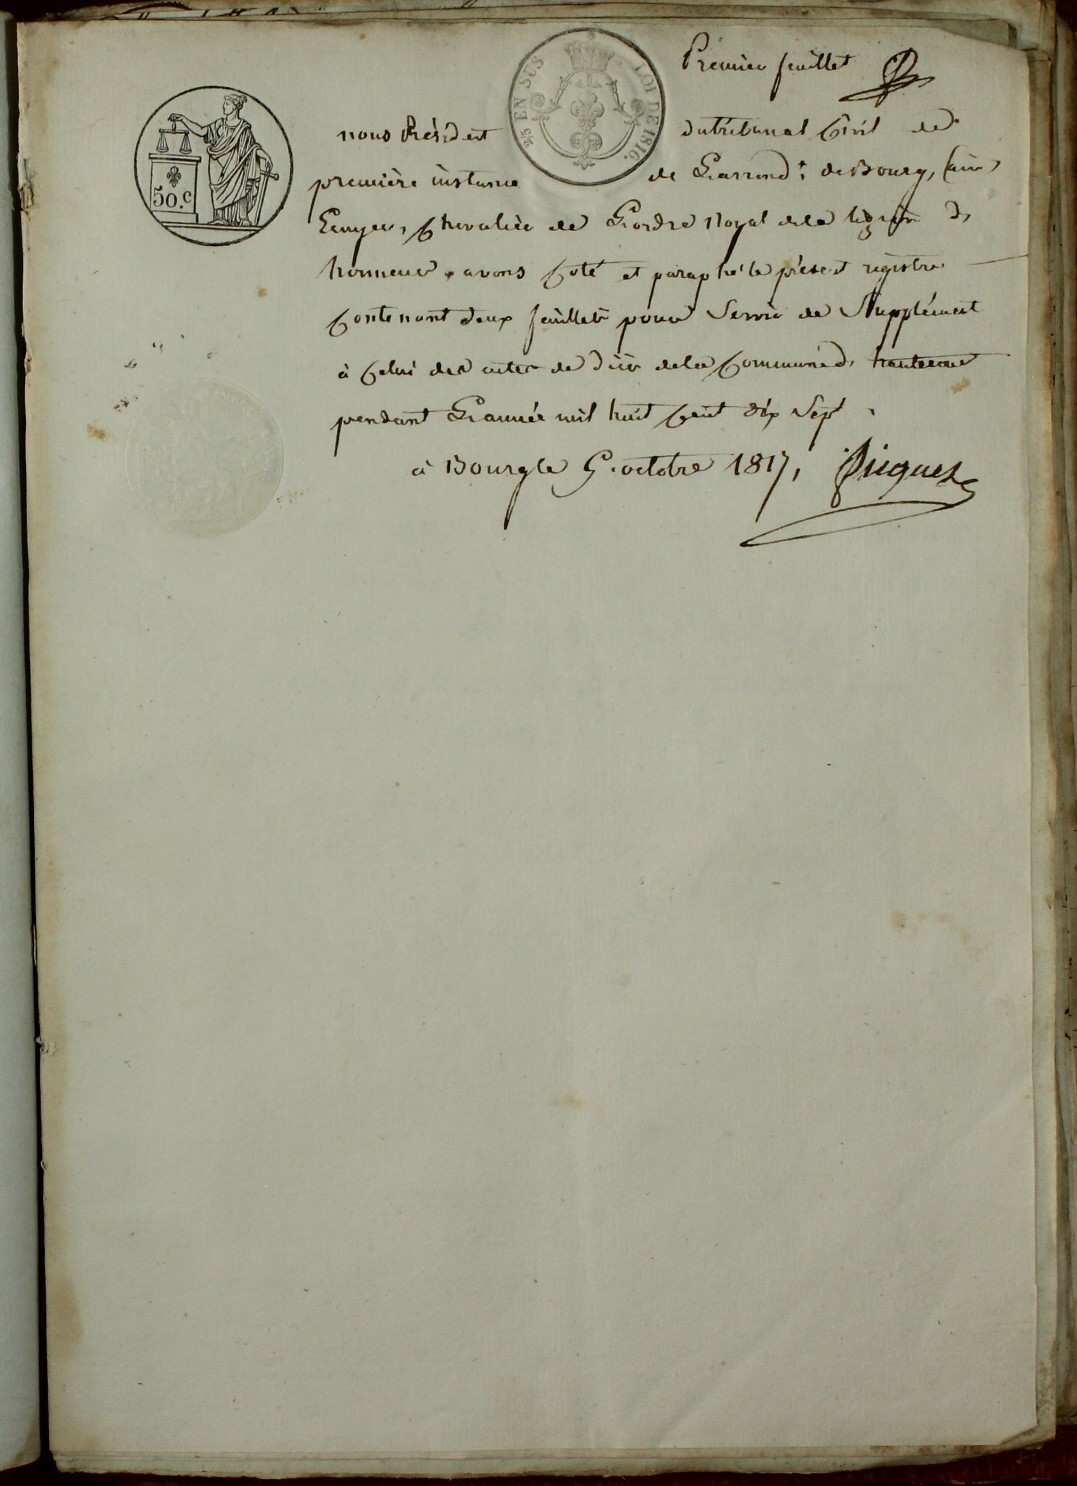 Premier feuillet
25 EN SUS LOI DE 1816.
50.c
nous Président du tribunal Civil de
première instance de L'arrond.t de Bourg, (ain)
Ecuyer, Chevalier de L'ordre Royal de la légion d'
honneur, avons Coté et paraphé le présent registre
Contenant deux feuillets pour Servir de Supplément
à Celui des actes de de la Commune d'
pendant L'année mil huit Cent dix Sept.
à Bourg le octobre 1817, Picquet